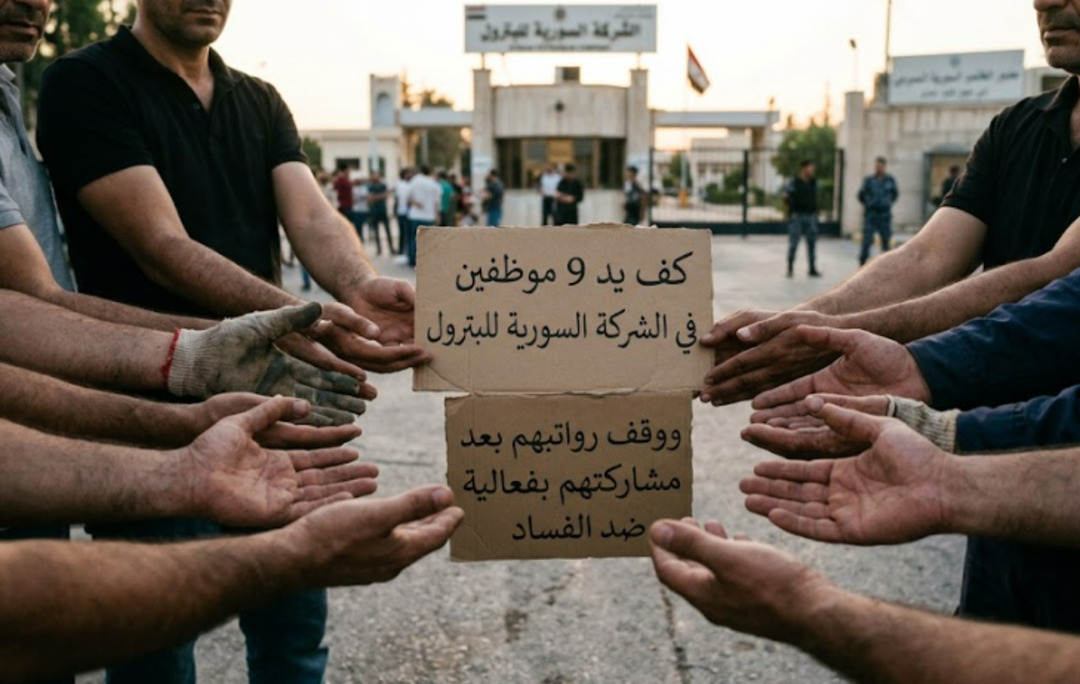 الشركة السورية للبترول
كف يد 9 موظفين
في الشركة السورية للبترول
ووقف رواتبهم بعد
مشاركتهم بفعالية
ضد الفساد